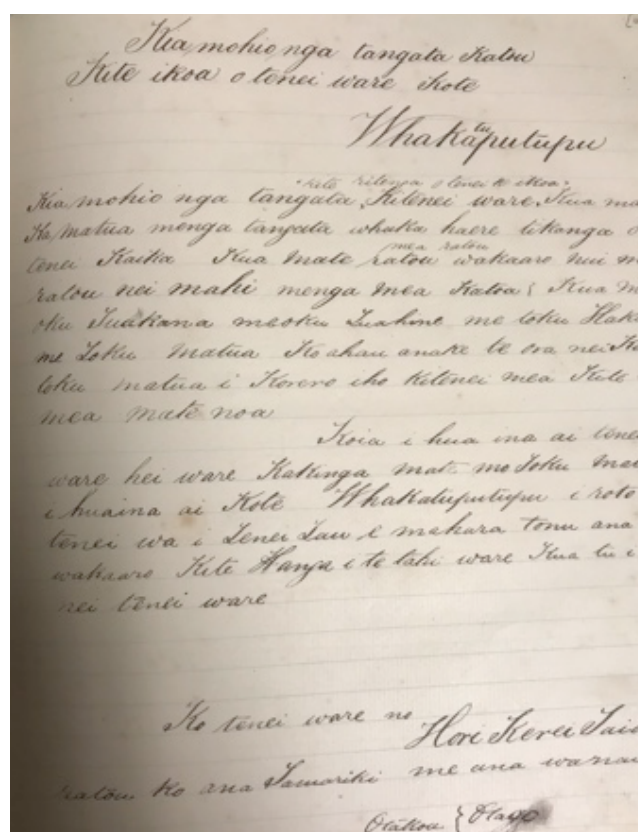 Kia mohio nga tangata Katoa
Kite ikoa o tenei ware Kote
Whakaputupu
tu
Kite ritenga o tenei k ikoa
Kia mohio nga tangata Kitenei ware Kua ma
Ka matua menga tangata whaka haere tikanga o
mea ratou
tenei Kaika Kua Mate ratou wakaaro nui m
ratou nei mahi menga mea Katoa Kua m
oku Tuakana meoku Tuahine me toku Hak
me Toku Matua Ko ahau anake te ora nei K
toku matua i Korero iho Kitenei mea Kite
mea mate noa
Koia i hua ina ai tene
ware hei ware Kakinga mate mo Toku Ma
i huaina ai Kote Whakatuputupu i roto
tenei wa i Tenei Tau, e mahara tonu ana
wakaaro Kite Hanga i te tahi ware Kua tu i
nei tenei ware
Ko tenei ware no
Hori Kerei Tai
ratou ko ana Tamariki me ana wa
Otakou { Otago